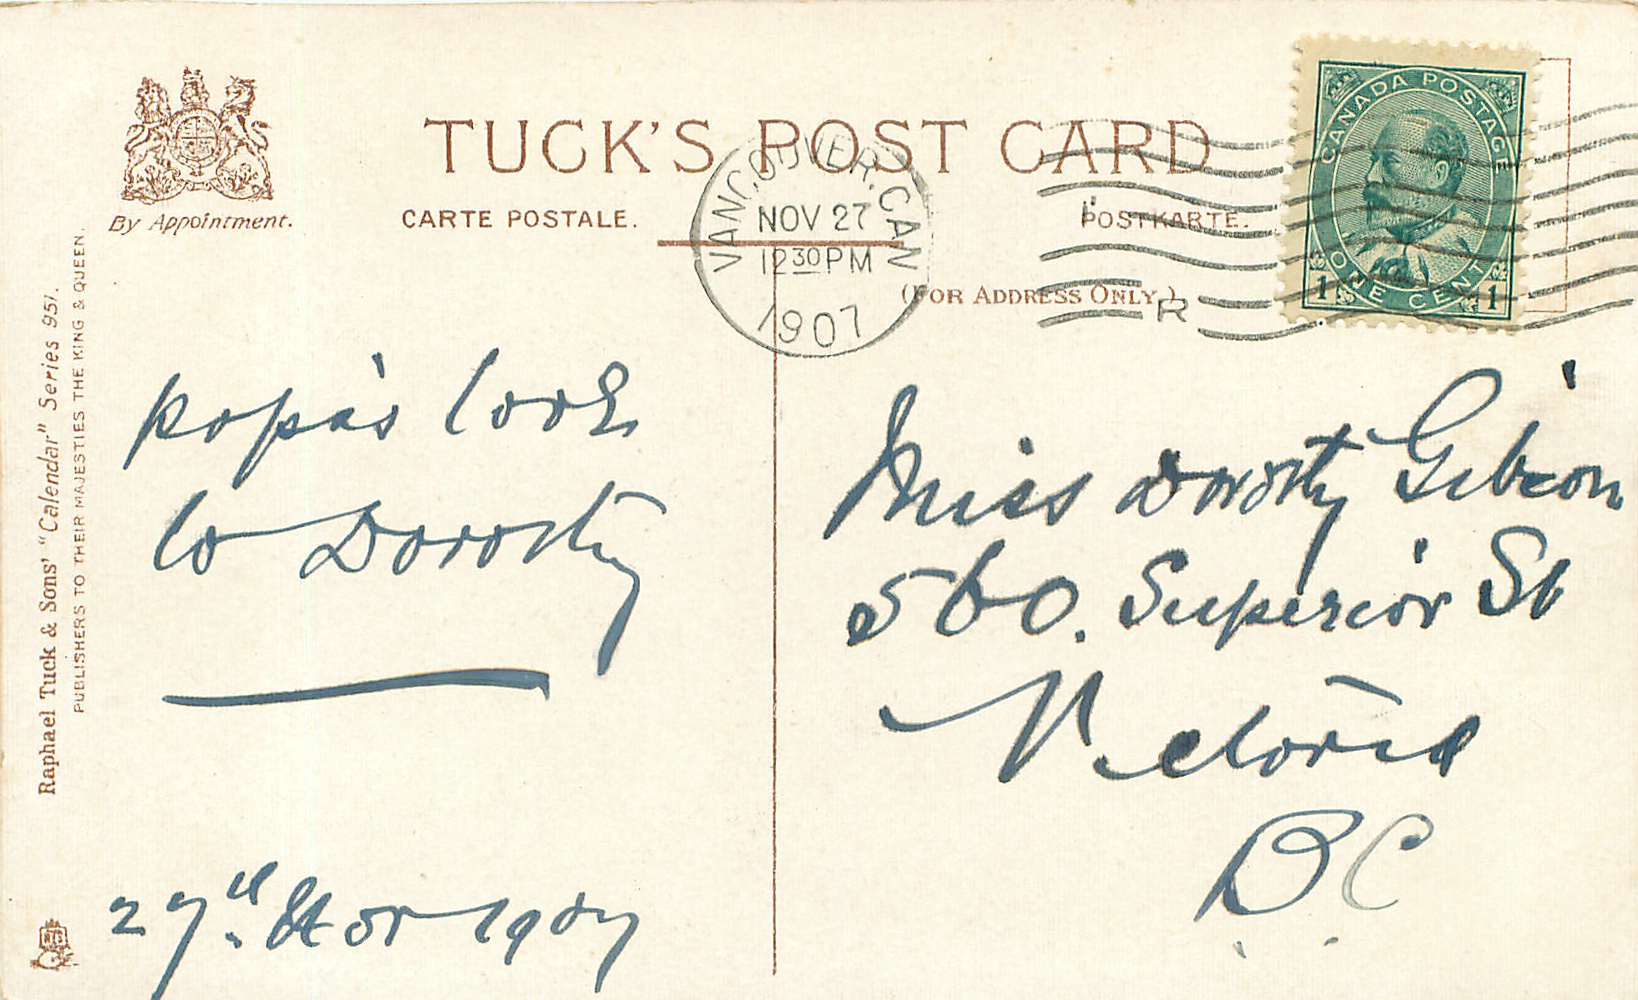 TUCK'S POST CARD
By Appointment.
CARTE POSTALE.
POSTKARTE.
(FOR ADDRESS ONLY.)
VANCOUVER, CAN
NOV 27
12 30 PM
1907
R
CANADA POSTAGE
ONE CENT
1 1
Raphael Tuck & Sons' "Calendar" Series 951.
PUBLISHERS TO THEIR MAJESTIES THE KING & QUEEN.
papa's love
to Dorothy
27th Nov 1907
Miss Dorothy Gibson
560. Superior St
Victoria
BC